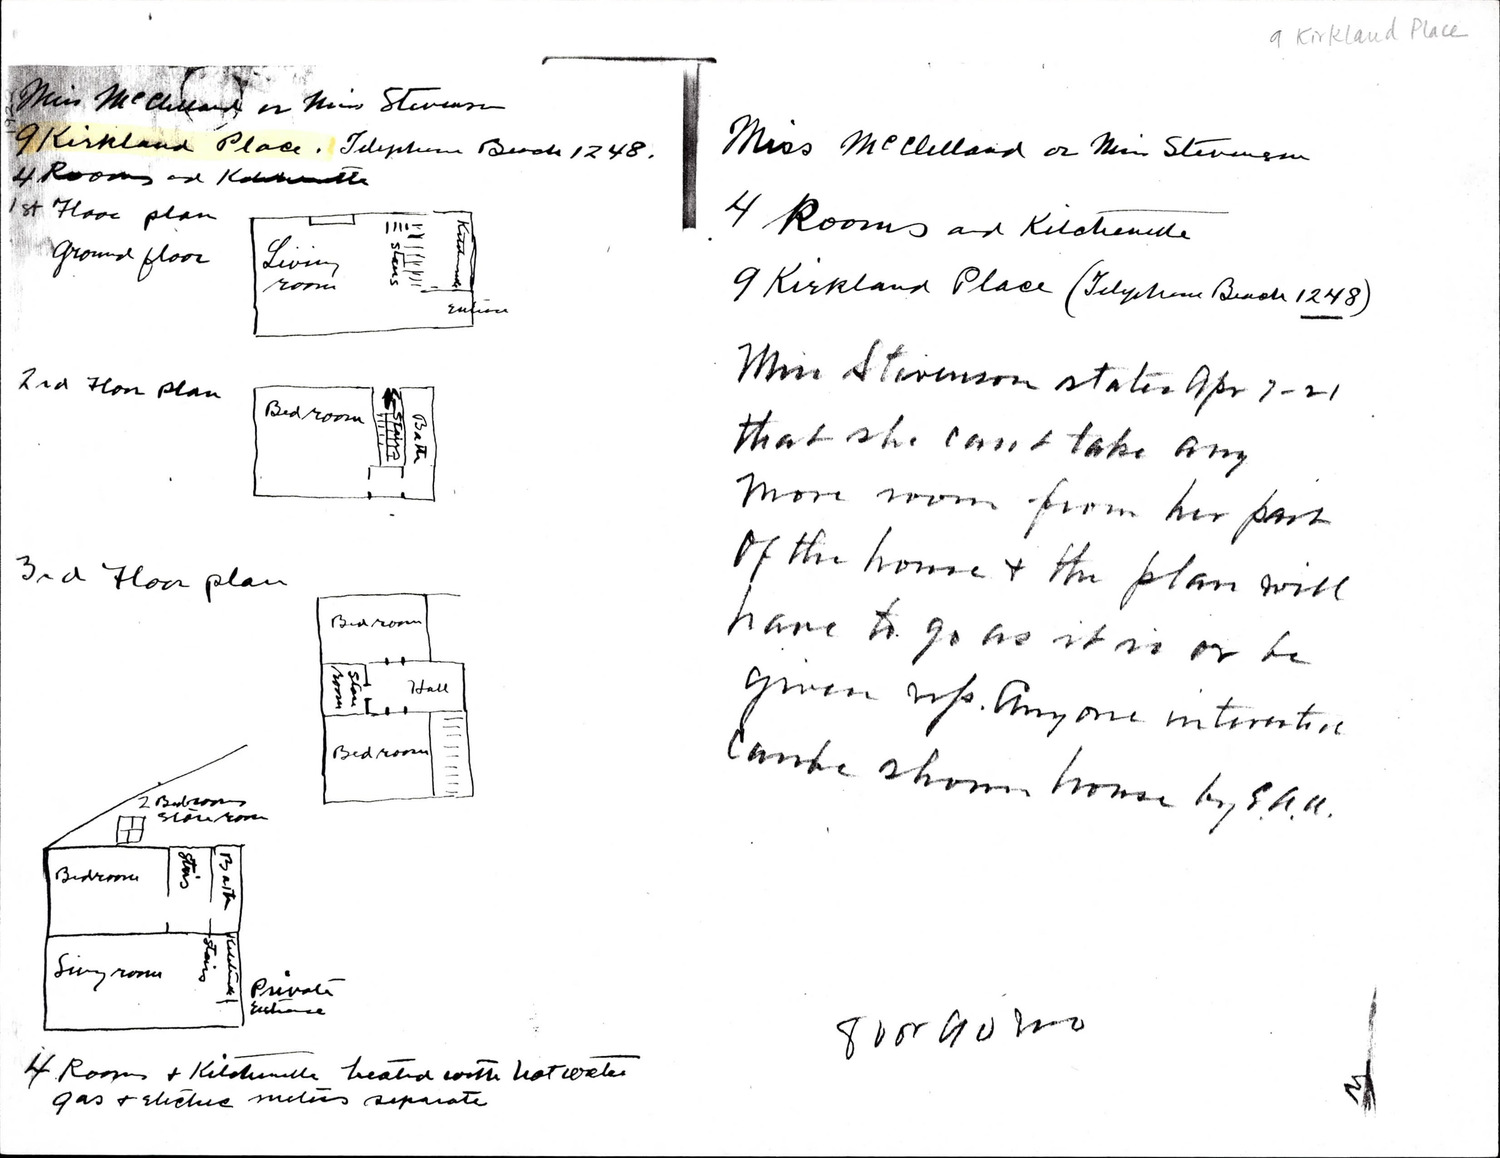 9 Kirkland Place
Miss McClelland or Miss Stevenson
9 Kirkland Place. Telephone Beach 1248.
4 Rooms and Kitchenette
1st Floor plan
Ground floor
Living
room
Stairs
Kitchenette
Entrance
2nd Floor plan
Bedroom
Stairs
Bath
3rd Floor plan
Bedroom
Store
room
Hall
Bedroom
2 Bedrooms
Store room
Bedroom
Stairs
Bath
Living room
Stairs
Kitchenette
Private
Entrance
4 Rooms + Kitchenette heated with hot water
gas + electric meters separate
Miss McClelland or Miss Stevenson
4 Rooms and Kitchenette
9 Kirkland Place (Telephone Beach 1248)
Miss Stevenson states Apr 7-21
that she can't take any
more room from her part
of the house + the plan will
have to go as it is or be
given up. Anyone interested
can be shown house by
80 or 90 mo